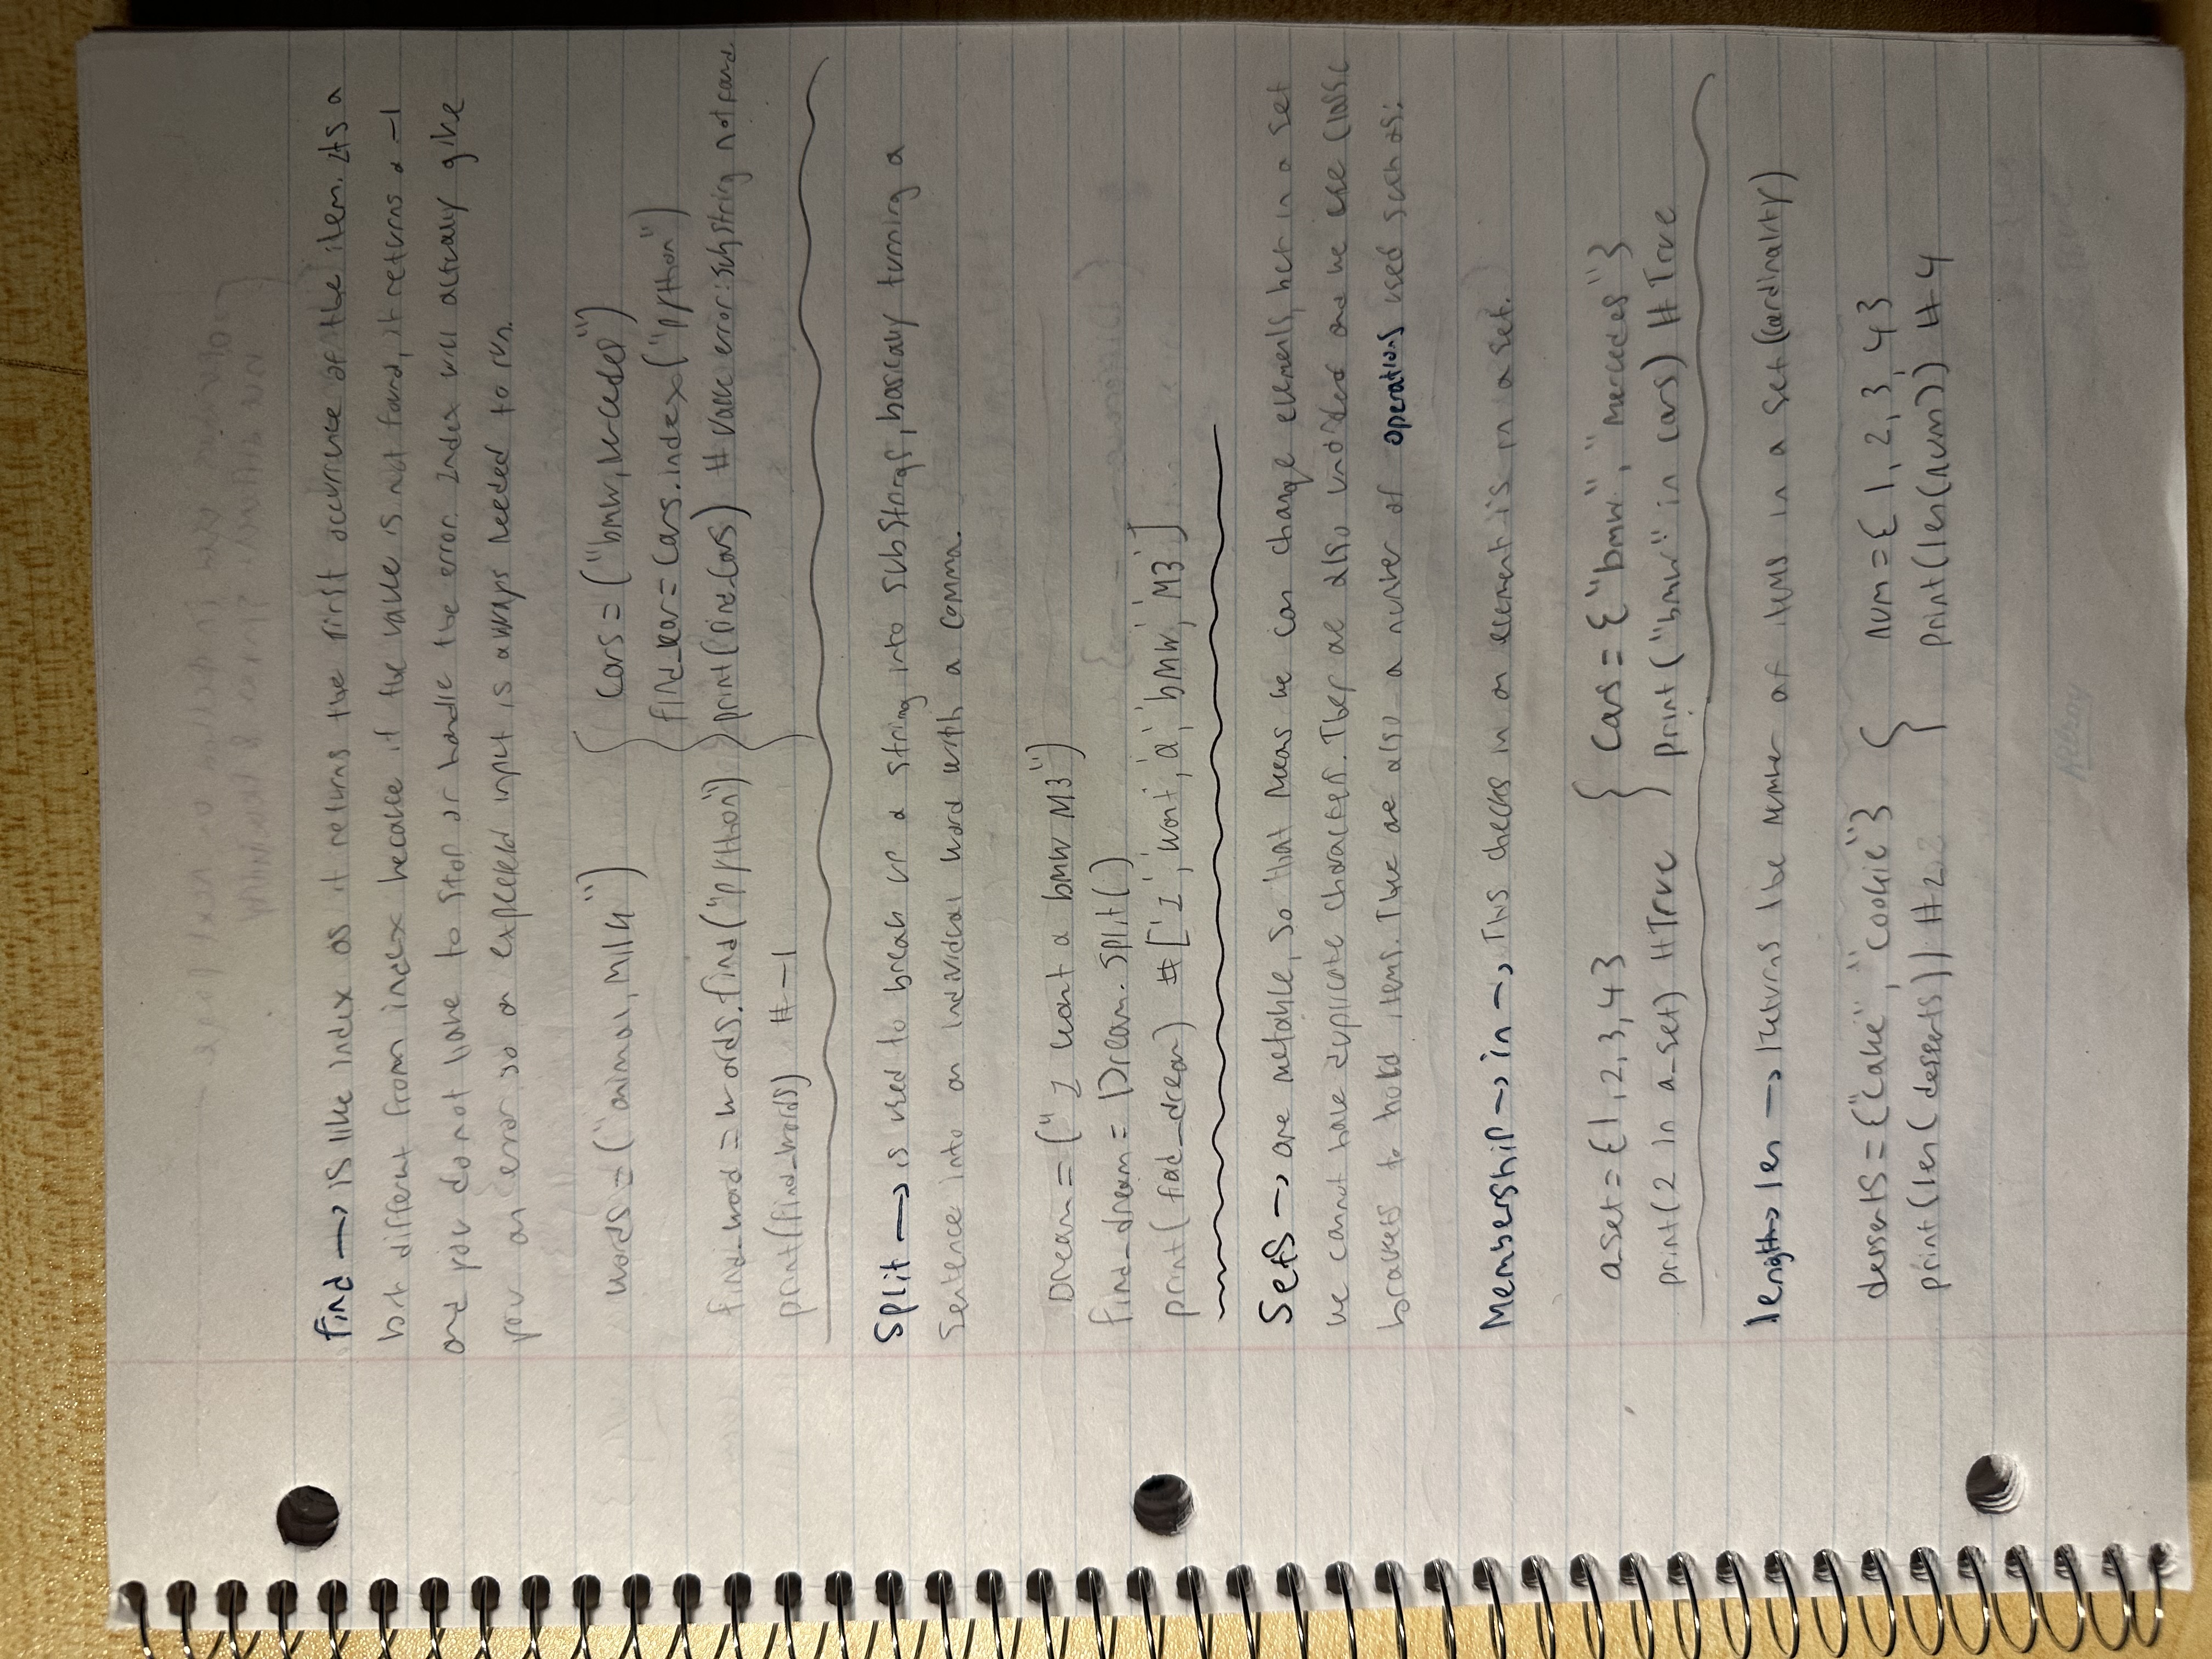 find → is like index as it returns the first occurrence of the item. Its a
bit different from index because if the value is not found, it returns a -1
and you do not have to stop or handle the error. Index will actually give
you an error so an expected input is always needed to run.
words = ("animal, Milk")
find_word = words.find("python")
print(find_words) # -1
Cars = ("bmw, Mercedes")
find_car = Cars.index("python")
print(find_cars) # Value error: substring not found
Split → is used to break up a string into substrings, basically turning a
sentence into an individual word with a comma.
Dream = ("I want a bmw M3")
find_dream = Dream.split()
print(find_dream) # ['I', 'want', 'a', 'bmw', 'M3']
Sets → are mutable, so that means we can change elements, but in a set
we cannot have duplicate characters. They are also unordered and we use
brackets to hold items. There are also a number of operations used such as:
Membership → in → This checks in an element is in a set.
a_set = {1, 2, 3, 4}
print(2 in a_set) # True
Cars = {"bmw", "Mercedes"}
print("bmw" in cars) # True
length → len → Returns the number of items in a set (cardinality)
desserts = {"Cake", "Cookie"}
print(len(desserts)) # 2
num = {1, 2, 3, 4}
print(len(num)) # 4